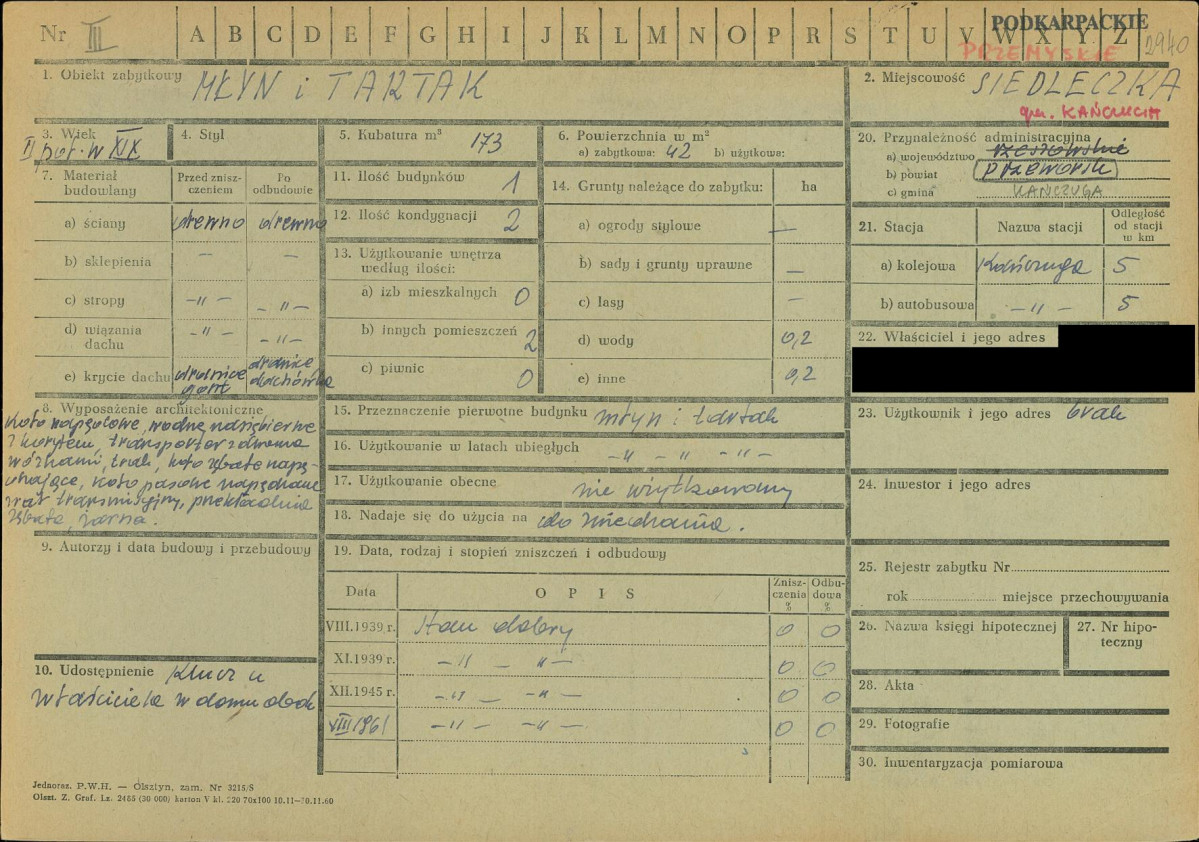 Nr III A B C D E F G H I J K L M N O P R S T U V W X Y Z
PODKARPACKIE
PRZEMYSKIE
2940
1. Obiekt zabytkowy MŁYN i TARTAK
2. Miejscowość SIEDLECZKA
gm. KAŃCZUGA
3. Wiek
II poł. w XIX
4. Styl
5. Kubatura m³ 173
6. Powierzchnia w m²
a) zabytkowa: 42 b) użytkowa:
20. Przynależność administracyjna
a) województwo rzeszowskie
b) powiat przeworsk
c) gmina KAŃCZUGA
7. Materiał budowlany
Przed zniszczeniem
Po odbudowie
a) ściany drewno drewno
b) sklepienia – –
c) stropy –„– –„–
d) wiązania dachu –„– –„–
e) krycie dachu dranice gont dranice dachówka
11. Ilość budynków 1
12. Ilość kondygnacji 2
13. Użytkowanie wnętrza według ilości:
a) izb mieszkalnych 0
b) innych pomieszczeń 2
c) piwnic 0
14. Grunty należące do zabytku: ha
a) ogrody stylowe –
b) sady i grunty uprawne –
c) lasy –
d) wody 0,2
e) inne 0,2
21. Stacja
Nazwa stacji
Odległość od stacji w km
a) kolejowa Kańczuga 5
b) autobusowa –„– 5
22. Właściciel i jego adres
8. Wyposażenie architektoniczne
Koło napędowe, wodne nadsiębierne
z korytem, transporter z dwoma
wózkami, trak, koło zębate napę-
dzające, koło pasowe napędzane
wał transmisyjny, przekładnia
zębata, żarna.
15. Przeznaczenie pierwotne budynku młyn i tartak
16. Użytkowanie w latach ubiegłych –„– „ –„–
17. Użytkowanie obecne nie użytkowany
18. Nadaje się do użycia na do zwiedzania.
23. Użytkownik i jego adres brak
24. Inwestor i jego adres
9. Autorzy i data budowy i przebudowy
19. Data, rodzaj i stopień zniszczeń i odbudowy
Data
O P I S
Zniszczenia %
Odbudowa %
VIII.1939 r. Stan dobry 0 0
XI.1939 r. –„– „– 0 0
XII.1945 r. –„– –„– 0 0
VIII 1961 –„– –„– 0 0
10. Udostępnienie Klucz u
właściciela w domu obok
25. Rejestr zabytku Nr
rok miejsce przechowywania
26. Nazwa księgi hipotecznej
27. Nr hipoteczny
28. Akta
29. Fotografie
30. Inwentaryzacja pomiarowa
Jednoraz. P.W.H. — Olsztyn, zam. Nr 3215/S
Olszt. Z. Graf. Lz. 2455 (30 000) karton V kl. 220 70x100 10.11—30.11.60